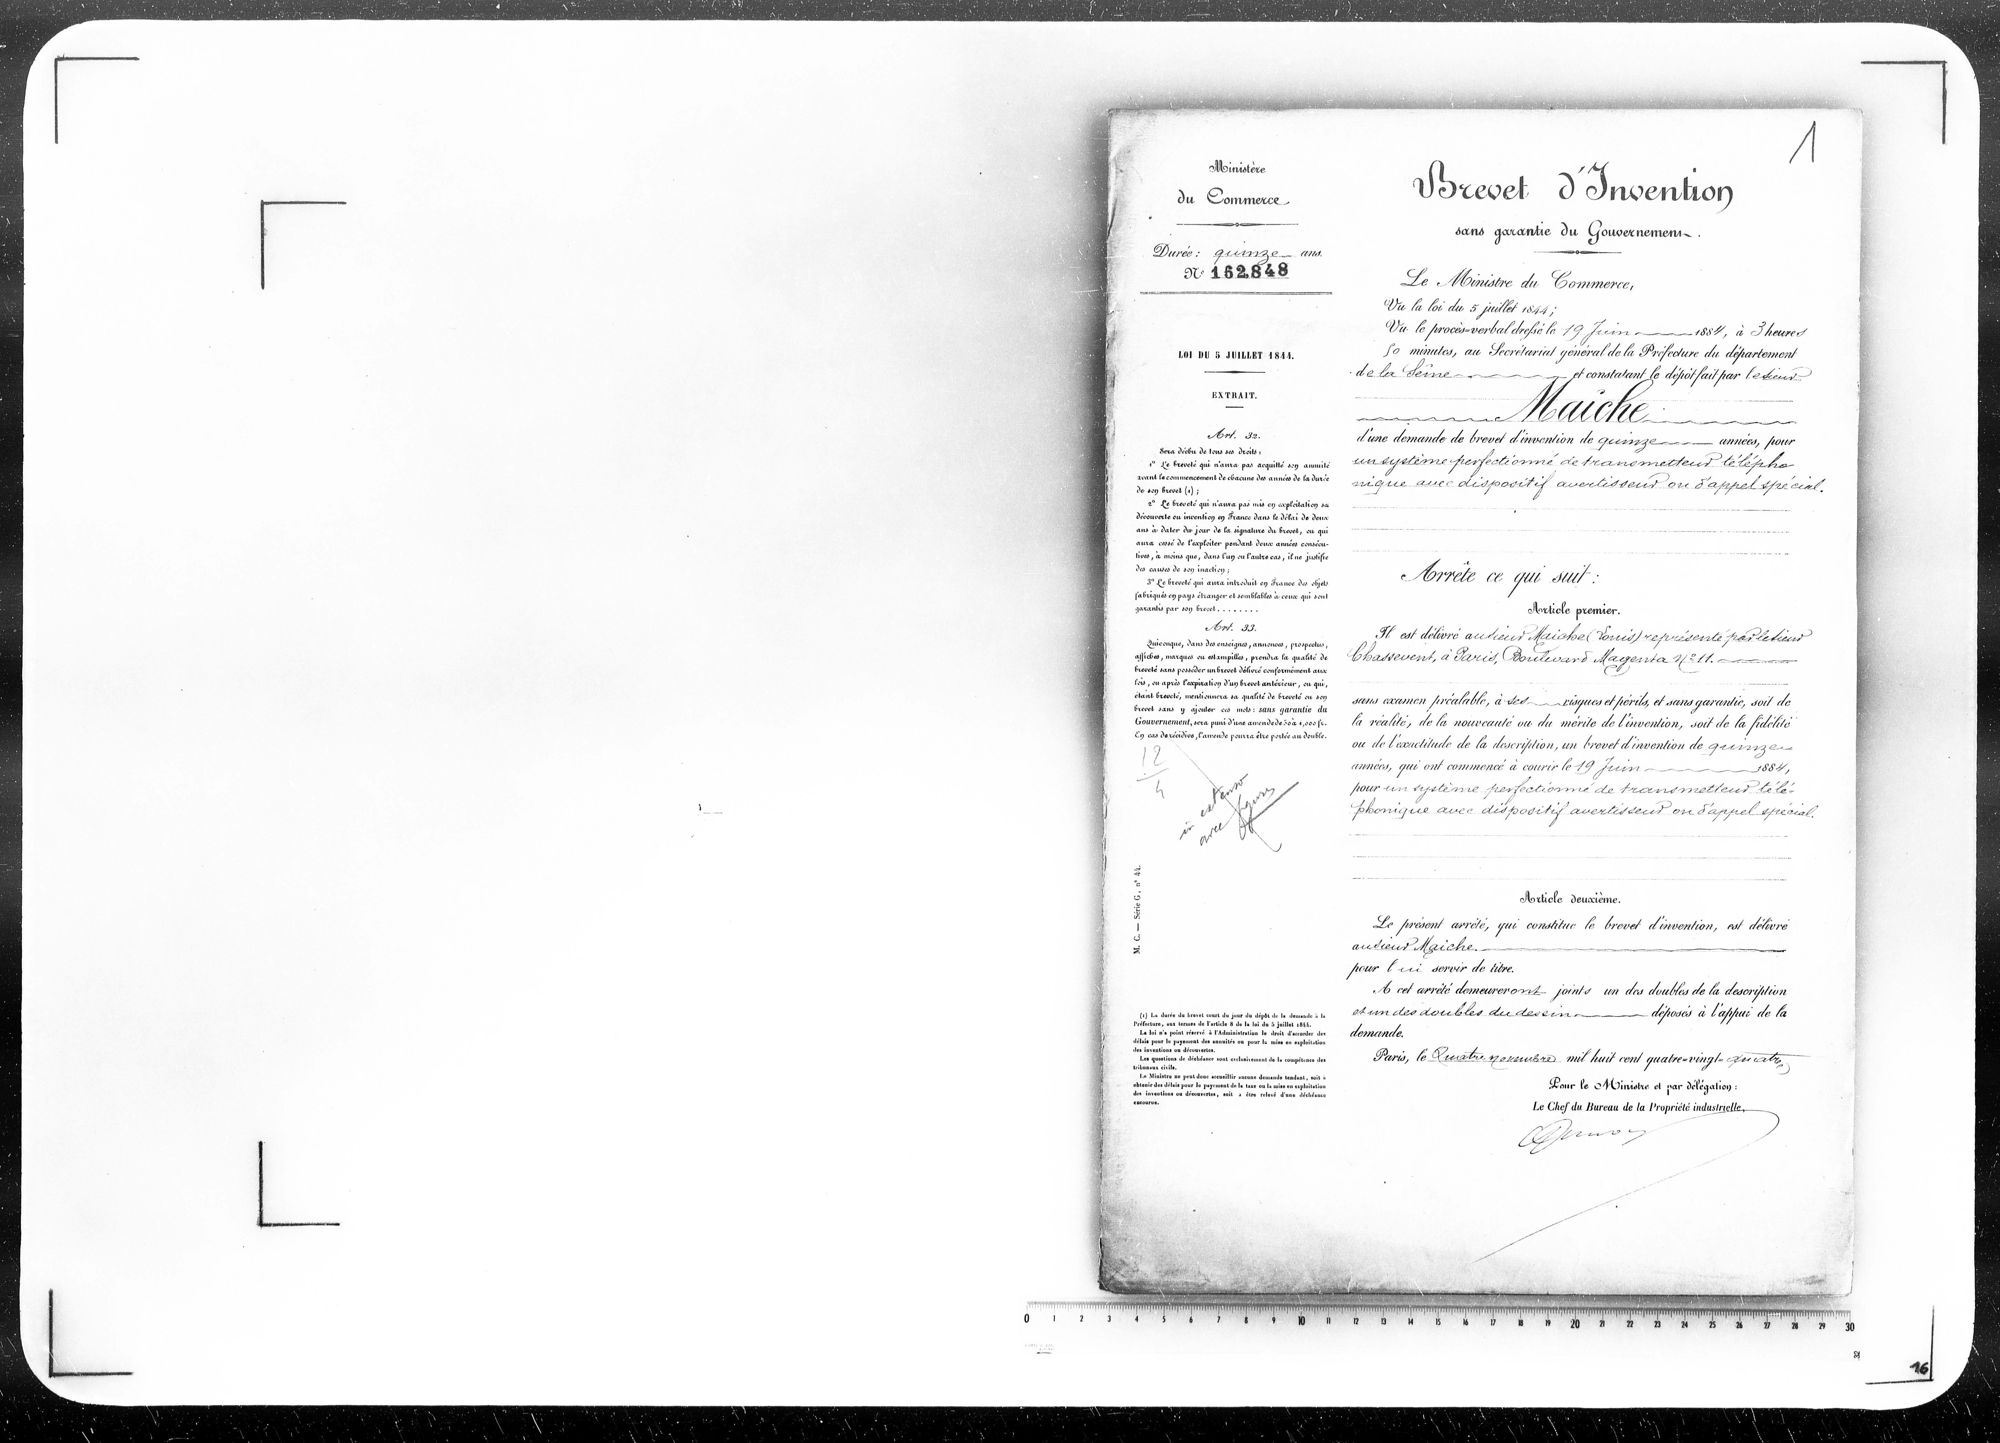 1
Ministère
du Commerce
Durée: quinze ans.
N° 162848
LOI DU 5 JUILLET 1844.
EXTRAIT.
Art. 32.
Sera déchu de tous ses droits:
1° Le breveté qui n'aura pas acquitté son annuité
avant le commencement de chacune des années de la durée
de son brevet (1);
2° Le breveté qui n'aura pas mis en exploitation sa
découverte ou invention en France dans le délai de deux
ans à dater du jour de la signature du brevet, ou qui
aura cessé de l'exploiter pendant deux années consécu-
tives, à moins que, dans l'un ou l'autre cas, il ne justifie
des causes de son inaction;
3° Le breveté qui aura introduit en France des objets
fabriqués en pays étranger et semblables à ceux qui sont
garantis par son brevet........
Art. 33.
Quiconque, dans des enseignes, annonces, prospectus,
affiches, marques ou estampilles, prendra la qualité de
breveté sans posséder un brevet délivré conformément aux
lois, ou après l'expiration d'un brevet antérieur, ou qui,
étant breveté, mentionnera sa qualité de breveté ou son
brevet sans y ajouter ces mots: sans garantie du
Gouvernement, sera puni d'une amende de 50 à 1,000 fr.
En cas de récidive, l'amende pourra être portée au double.
12
4
in extenso
avec figures
M. C. — Série G, n° 44.
(1) La durée du brevet court du jour du dépôt de la demande à la
Préfecture, aux termes de l'article 8 de la loi du 5 juillet 1844.
La loi n'a point réservé à l'Administration le droit d'accorder des
délais pour le payement des annuités ou pour la mise en exploitation
des inventions ou découvertes.
Les questions de déchéance sont exclusivement de la compétence des
tribunaux civils.
Le Ministre ne peut donc accueillir aucune demande tendant, soit à
obtenir des délais pour le payement de la taxe ou la mise en exploitation
des inventions ou découvertes, soit à être relevé d'une déchéance
encourue.
Brevet d'Invention
sans garantie du Gouvernement.
Le Ministre du Commerce,
Vu la loi du 5 juillet 1844;
Vu le procès-verbal dressé le 19 Juin 1884, à 3 heures
50 minutes, au Secrétariat général de la Préfecture du département
de la Seine et constatant le dépôt fait par le sieur
Maiche
d'une demande de brevet d'invention de quinze années, pour
un système perfectionné de transmetteur télépho
nique avec dispositif avertisseur ou d'appel spécial.
Arrête ce qui suit:
Article premier.
Il est délivré au sieur Maiche (Louis) représenté par le sieur
Chassevent, à Paris, Boulevard Magenta N° 11.
sans examen préalable, à ses risques et périls, et sans garantie, soit de
la réalité, de la nouveauté ou du mérite de l'invention, soit de la fidélité
ou de l'exactitude de la description, un brevet d'invention de quinze
années, qui ont commencé à courir le 19 Juin 1884,
pour un système perfectionné de transmetteur télé-
phonique avec dispositif avertisseur ou d'appel spécial.
Article deuxième.
Le présent arrêté, qui constitue le brevet d'invention, est délivré
au sieur Maiche.
pour lui servir de titre.
A cet arrêté demeureront joints un des doubles de la description
et un des doubles du dessin déposés à l'appui de la
demande.
Paris, le Quatre novembre mil huit cent quatre-vingt-quatre
Pour le Ministre et par délégation:
Le Chef du Bureau de la Propriété industrielle,
0 1 2 3 4 5 6 7 8 9 10 11 12 13 14 15 16 17 18 19 20 21 22 23 24 25 26 27 28 29 30
16